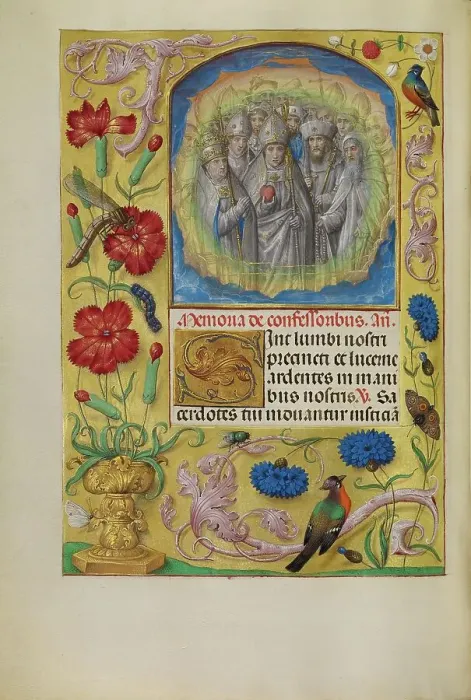 Memoria de confessoribus. An̄.
Sinc lumbi nostri
precincti et lucerne
ardentes in mani
bus nostris. V. Sa
cerdotes tui induantur iusticiā